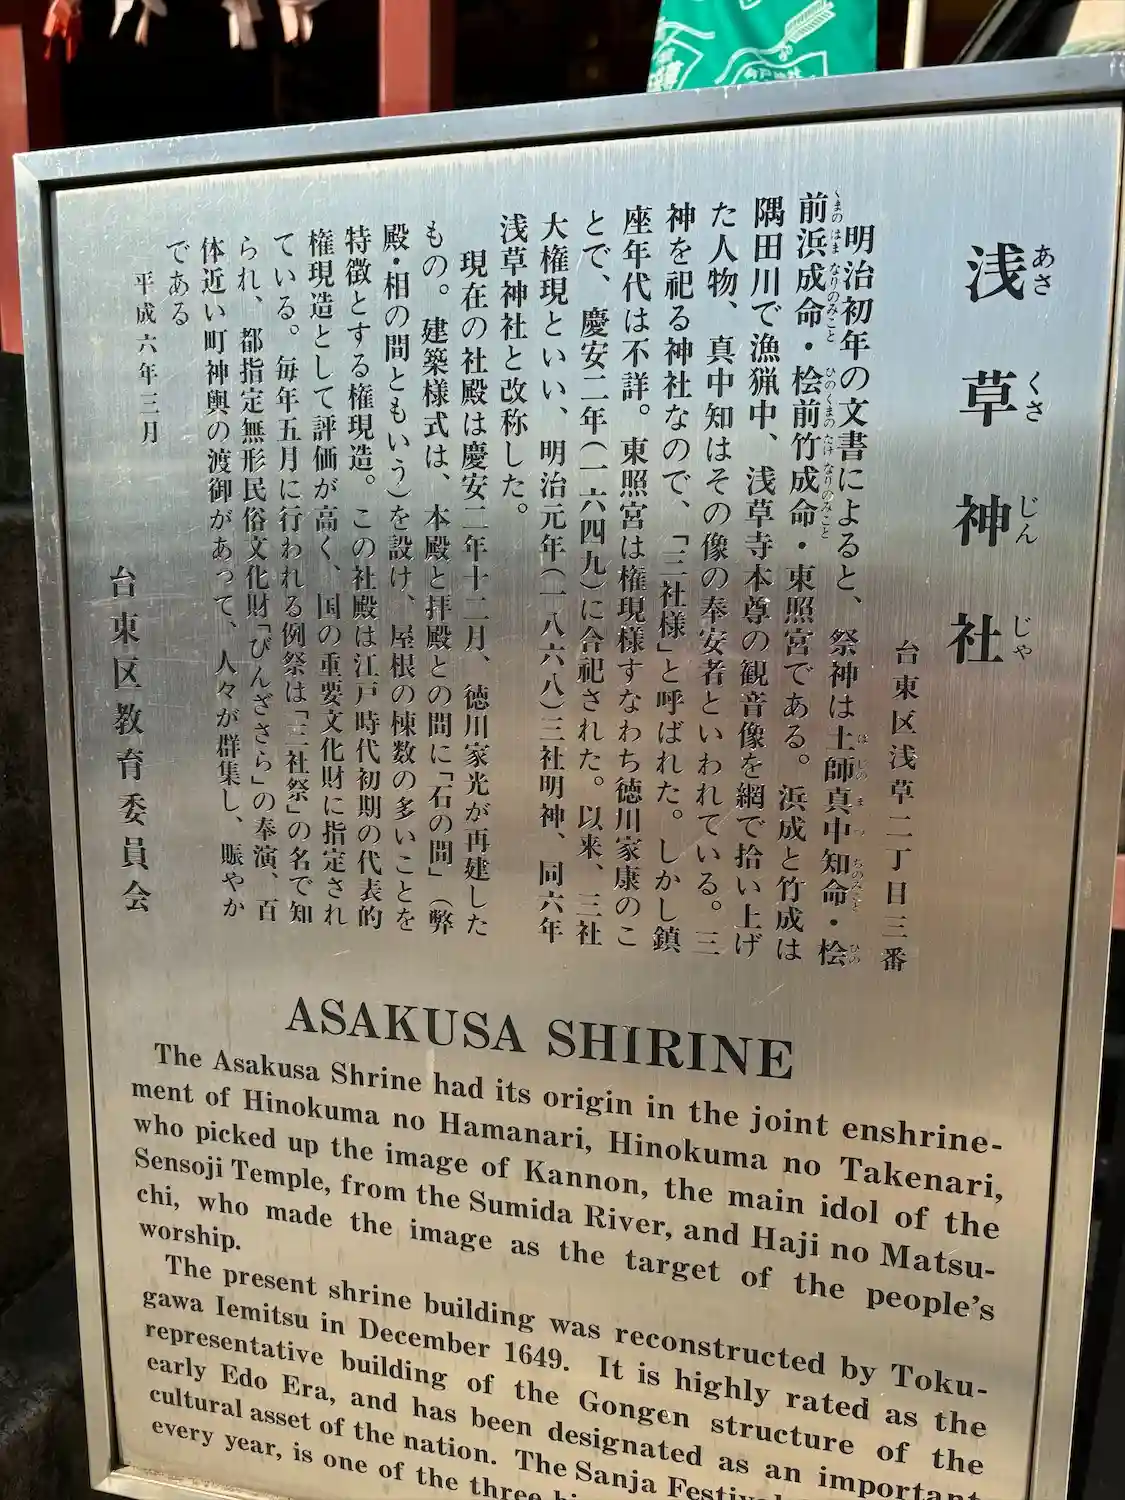 浅草神社
あさくさじんじゃ
台東区浅草二丁目三番
明治初年の文書によると、祭神は土師真中知命・桧
はじのまつちのみこと ひの
前浜成命・桧前竹成命・東照宮である。浜成と竹成は
くまのはまなりのみこと ひのくまのたけなりのみこと
隅田川で漁猟中、浅草寺本尊の観音像を網で拾い上げ
た人物、真中知はその像の奉安者といわれている。三
神を祀る神社なので、「三社様」と呼ばれた。しかし鎮
座年代は不詳。東照宮は権現様すなわち徳川家康のこ
とで、慶安二年(一六四九)に合祀された。以来、三社
大権現といい、明治元年(一八六八)三社明神、同六年
浅草神社と改称した。
現在の社殿は慶安二年十二月、徳川家光が再建した
もの。建築様式は、本殿と拝殿との間に「石の間」(弊
殿・相の間ともいう)を設け、屋根の棟数の多いことを
特徴とする権現造。この社殿は江戸時代初期の代表的
権現造として評価が高く、国の重要文化財に指定され
ている。毎年五月に行われる例祭は「三社祭」の名で知
られ、都指定無形民俗文化財「びんざさら」の奉演、百
体近い町神輿の渡御があって、人々が群集し、賑やか
である
平成六年三月
台東区教育委員会
ASAKUSA SHIRINE
The Asakusa Shrine had its origin in the joint enshrine-
ment of Hinokuma no Hamanari, Hinokuma no Takenari,
who picked up the image of Kannon, the main idol of the
Sensoji Temple, from the Sumida River, and Haji no Matsu-
chi, who made the image as the target of the people's
worship.
The present shrine building was reconstructed by Toku-
gawa Iemitsu in December 1649. It is highly rated as the
representative building of the Gongen structure of the
early Edo Era, and has been designated as an important
cultural asset of the nation. The Sanja Festival
every year, is one of the three